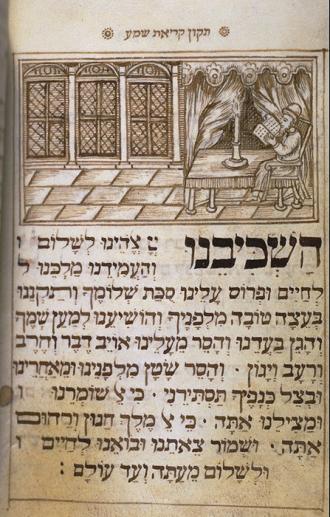 תקון קריאת שמע
הַשְׁכִּיבֵנוּ יְיָ אֱלֹהֵינוּ לְשָׁלוֹם ו
וְהַעֲמִידֵנוּ מַלְכֵּנוּ ל
לְחַיִּים וּפְרוֹס עָלֵינוּ סֻכַּת שְׁלוֹמֶךָ וְתַקְּנֵנוּ
בְּעֵצָה טוֹבָה מִלְּפָנֶיךָ וְהוֹשִׁיעֵנוּ לְמַעַן שְׁמֶךָ
וְהָגֵן בַּעֲדֵנוּ וְהָסֵר מֵעָלֵינוּ אוֹיֵב דֶּבֶר וְחֶרֶב
וְרָעָב וְיָגוֹן · וְהָסֵר שָׂטָן מִלְּפָנֵינוּ וּמֵאַחֲרֵינוּ
וּבְצֵל כְּנָפֶיךָ תַּסְתִּירֵנוּ · כִּי אֵל שׁוֹמְרֵנוּ ו
וּמַצִּילֵנוּ אָתָּה · כִּי אֵל מֶלֶךְ חַנּוּן וְרַחוּם
אָתָּה · וּשְׁמוֹר צֵאתֵנוּ וּבוֹאֵנוּ לְחַיִּים ו
וּלְשָׁלוֹם מֵעַתָּה וְעַד עוֹלָם :